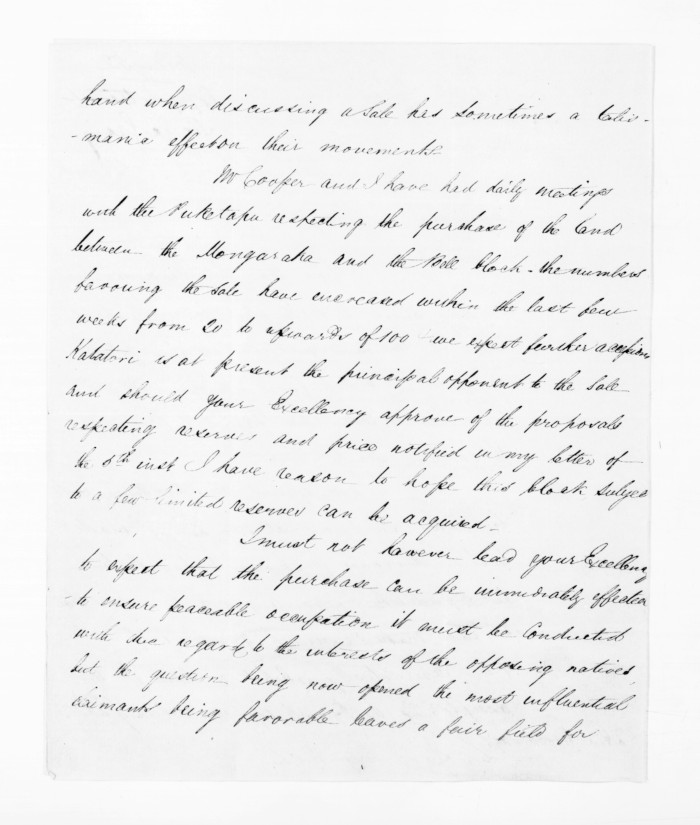 hand when discussing a Sale has sometimes a talis-
-manic effect on their movements.
Mr Cooper and I have had daily meetings
with the Puketapu respecting the purchase of the land
between the Mongaraka and the Bell block - the numbers
favouring the Sale have increased within the last few
weeks from 20 to upwards of 100 - we expect further accessions
Katatori is at present the principal opponent to the Sale
and should your Excellency approve of the proposals
respecting reserves and price notified in my letter of
the 8th inst I have reason to hope this block subject
to a few limited reserves can be acquired -
I must not however lead your Excellency
to expect that the purchase can be immediately effected
- to ensure peaceable occupation it must be conducted
with due regard, to the interests of the opposing natives,
but the question being now opened the most influential
claimants being favorable leaves a fair field for